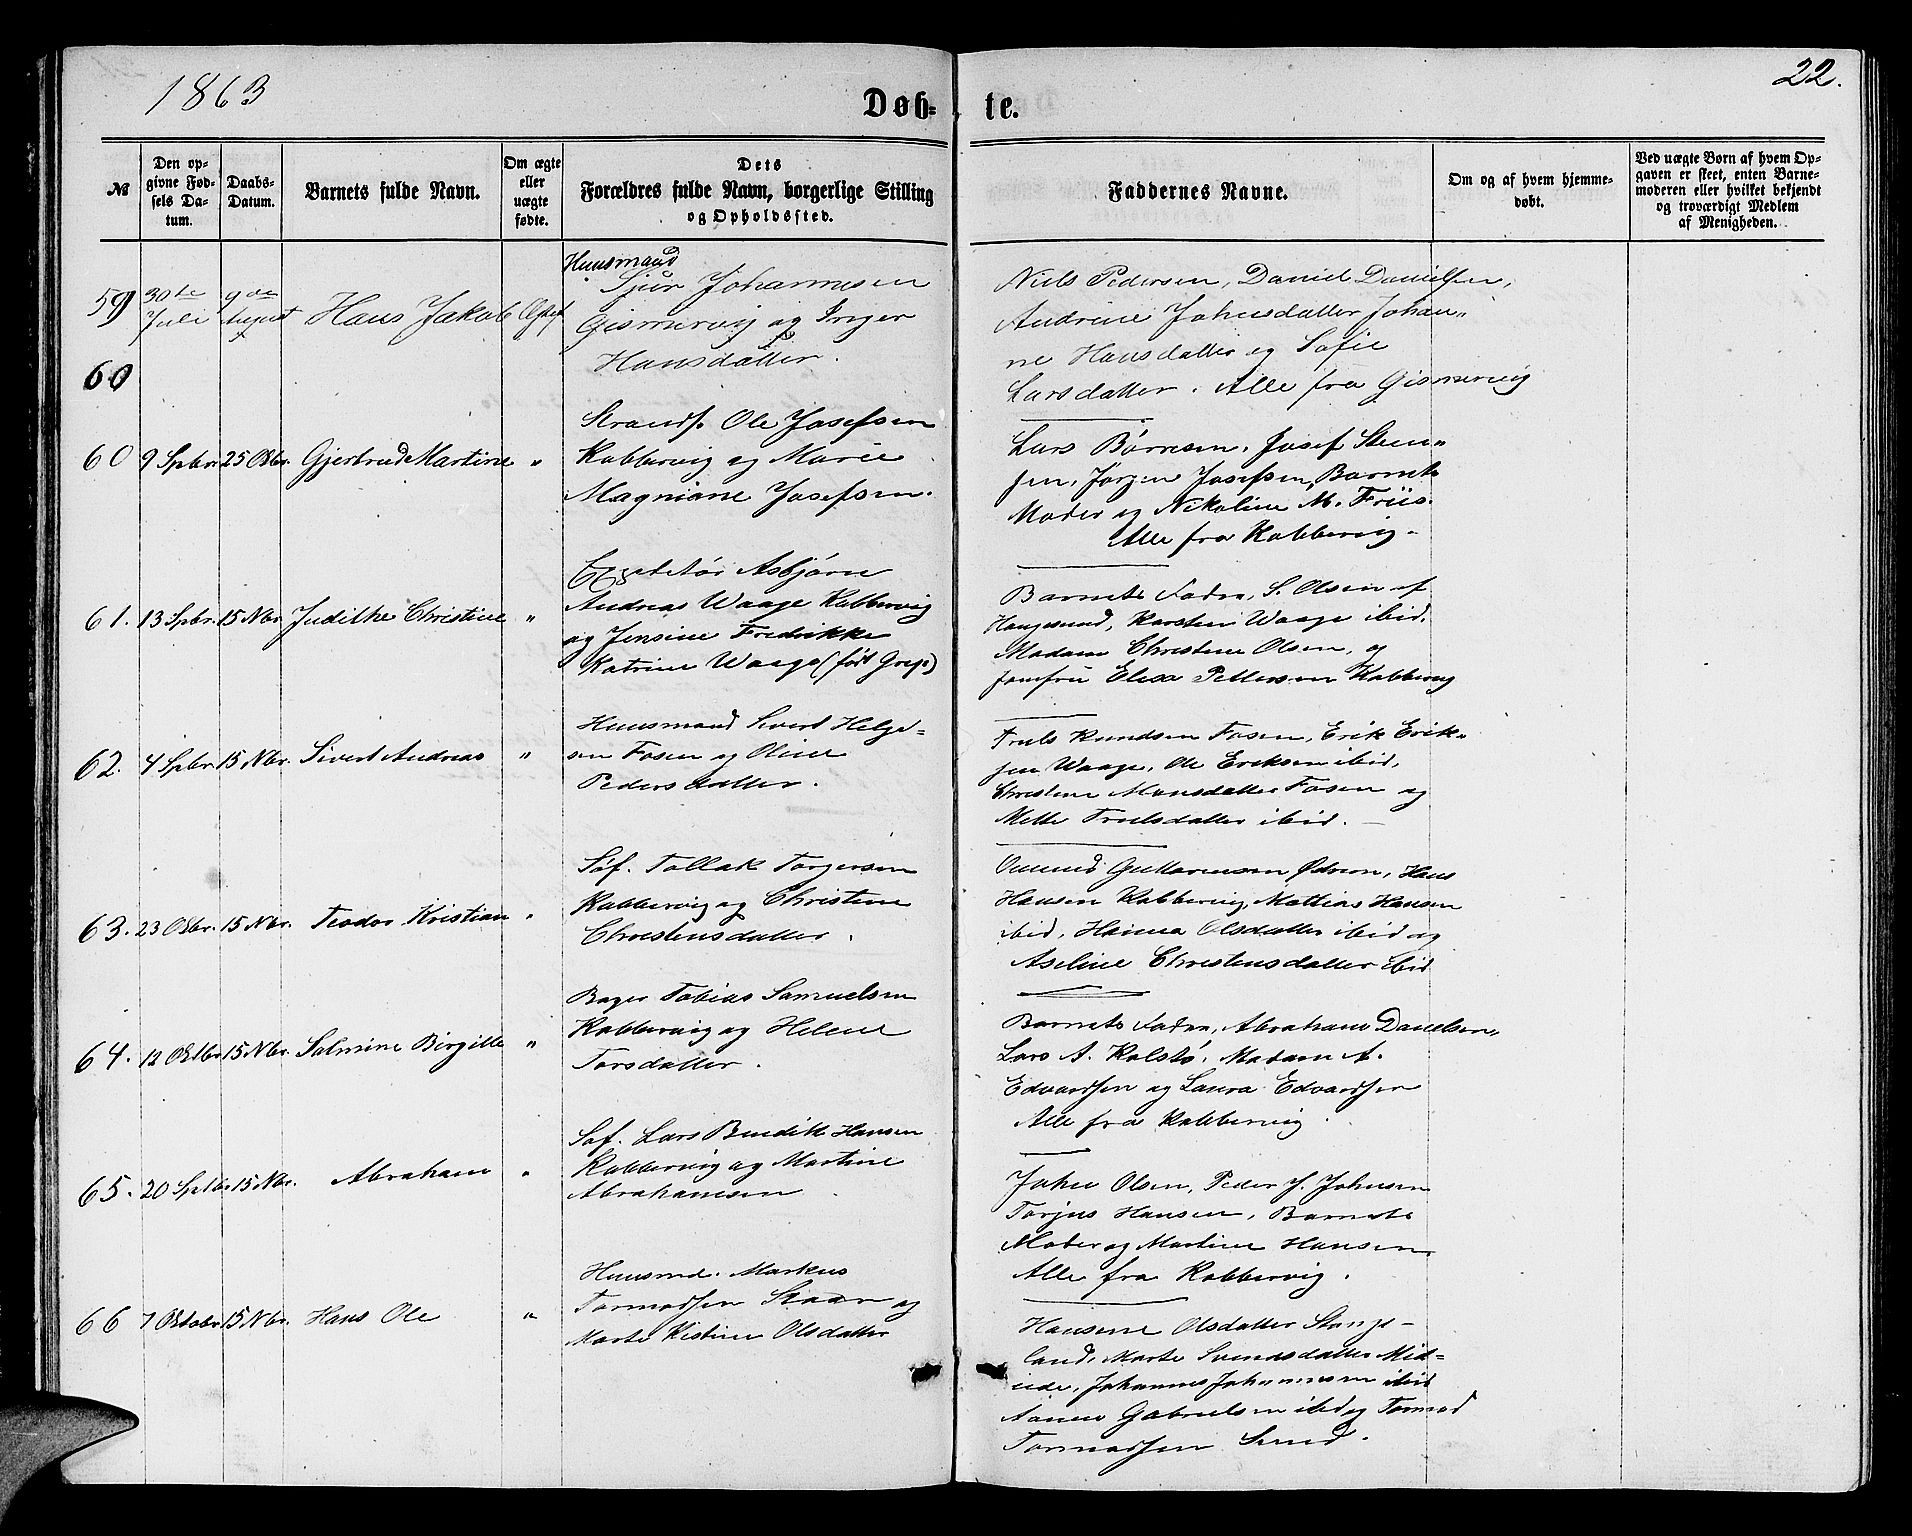 1863
22.
Døb-
te.
№
Den op-
givne Fød-
sels Da-
tum.
Daabs-
Datum.
Barnets fulde Navn.
Om ægte
eller
uægte
fødte.
Dets
Forældres fulde Navn, borgerlige Stilling
og Opholdssted.
Faddernes Navne.
Om og af hvem hjemme-
døbt.
Ved uægte Børn af hvem Op-
gaven er skeet, enten Barne-
moderen eller hvilket bekjendt
og troværdigt Medlem
af Menigheden.
59 30te Juli 9de August Hans Jakob
Huusmand
Sjur Johannesen
Gismervig og Inger
Hansdatter.
Niels Pedersen, Daniel Danielsen,
Andrine Johnsdatter, Johan-
ne Hansdatter og Sofie
Larsdatter. Alle fra Gismervig
60
60 9 Spbr. 25 Okbr. Gjertrud Martine "
Strands. Ole Josefsen
Kobbervig og Marie
Magniane Josefsen.
Lars Børresen, Josef Steen-
sen, Jørgen Josefsen, Barnets
Moder og Nikoline M. Friis.
Alle fra Kobbervig.
61. 13 Spbr. 15 Nbr. Judithe Christine "
Asbjørn
Andreas Waage Kobbervig
og Jensine Fredrikke
Katrine Waage (født Greps)
Barnets Fader, S. Olsen af
Haugesund, Karsten Waage ibid.
Madam Christine Olsen, og
Jomfru Elisa Pettersen Kobbervig
62. 4 Spbr. 15 Nbr. Sivert Andreas "
Huusmand Sivert Helge-
sen Fosen og Oline
Pedersdatter.
Truls Knudsen Fosen, Erik Erik-
sen Waage, Ole Eriksen ibid,
Christine Monsdatter Fosen og
Mette Trulsdatter ibid.
63. 23 Okbr. 15 Nbr. Teodor Kristian "
Søf. Tollak Torgersen
Kobbervig og Christine
Christensdatter.
Omund Guttormsen Hans
Hansen Kobbervig, Mathias Hansen
ibid, Hanna Olsdatter ibid og
Aseline Christensdatter ibid
64. 12 Oktbr 15 Nbr. Salmine Birgitte "
Bager Tobias Samuelsen
Kobbervig og Helene
Torsdatter.
Barnets Fader, Abraham Danielsen,
Lars A. Kolstø, Madam A.
Edvardsen og Laura Edvardsen
Alle fra Kobbervig.
65. 20 Sptbr. 15 Nbr. Abraham "
Søf. Lars Bendik Hansen
Kobbervig og Martine
Abrahamsen
John Olsen, Peder J. Johnsen
Torjus Hansen, Barnets
Moder og Martine Hansen
Alle fra Kobbervig.
66 7 Oktobr 15 Nbr. Hans Ole "
Huusmd. Markus
Tormodsen Skaar og
Marte Kistine Olsdatter
Hansene Olsdatter Stangs-
land, Marte Svendsdatter
Johannes Johannesen ibid
Gabrielsen ibid og Tormod
Tormodsen Sund.